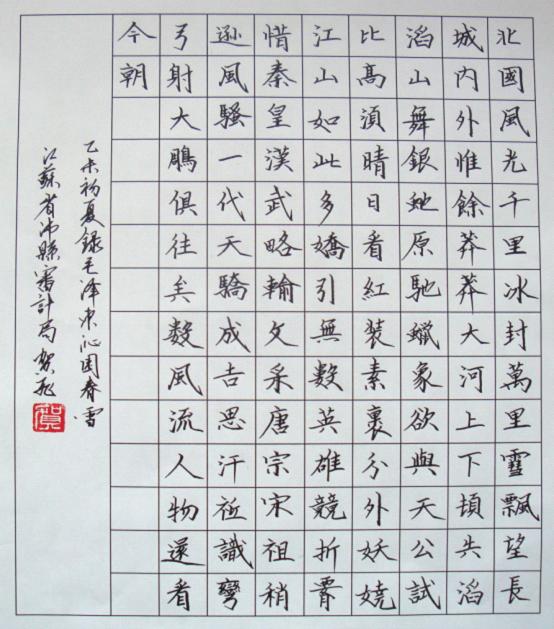 北國風光千里冰封萬里雪飄望長
城内外惟餘莽莽大河上下頓失滔
滔山舞銀蛇原馳蠟象欲與天公試
比高須晴日看紅装素裹分外妖嬈
江山如此多嬌引無數英雄競折腰
惜秦皇漢武略輸文采唐宗宋祖稍
遜風騷一代天驕成吉思汗祗識彎
弓射大鵰俱往矣数風流人物還看
今朝
乙未初夏錄毛澤東沁園春雪
江蘇省沛縣審計局賀飛